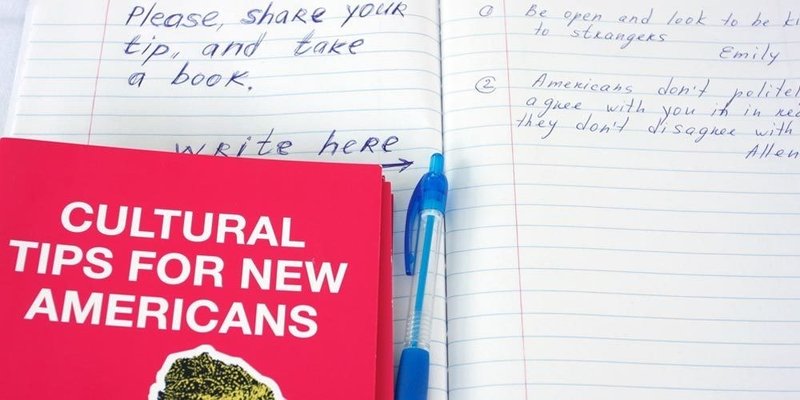 Please, share your
tip, and take
a book.
write here
CULTURAL
TIPS FOR NEW
AMERICANS
① Be open and look to be
to strangers
Emily
② Americans don't
agree with you in
they don't disagree with
Allen